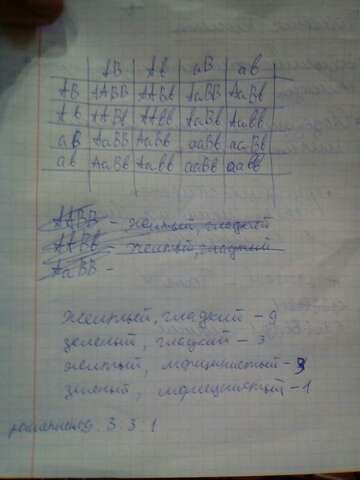 AB Ab aB ab
AB AABB AABb AaBB AaBb
Ab AABb AAbb AaBb Aabb
aB AaBB AaBb aaBB aaBb
ab AaBb Aabb aaBb aabb
AABB - желтый, гладкий
AABb - желтый, гладкий
AaBB -
желтый, гладкий - 9
зеленый, гладкий - 3
желтый, морщинистый - 3
зеленый, морщинистый - 1
9 : 3 : 3 : 1